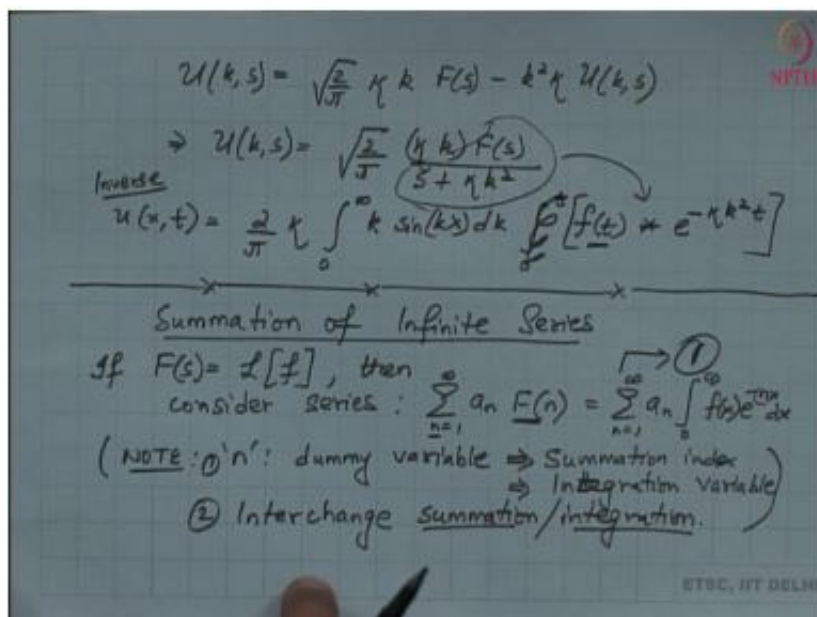 U(k,s) = √(2/π) η k F(s) - k² η U(k,s)
NPTEL
⇒ U(k,s) = √(2/π) (η k) F(s) / (s + η k²)
Inverse
u(x,t) = 2/π η ∫₀^∞ k sin(kx) dk [f(t) * e^{-ηk²t}]
Summation of Infinite Series
If F(s) = L[f], then
consider series: ∑_{n=1}^∞ a_n F(n) = ∑_{n=1}^∞ a_n ∫₀^∞ f(x) e^{-nx} dx ①
(NOTE: ① 'n': dummy variable ⇒ Summation index
⇒ Integration variable
② Interchange summation/integration.)
ETSC, IIT DELHI